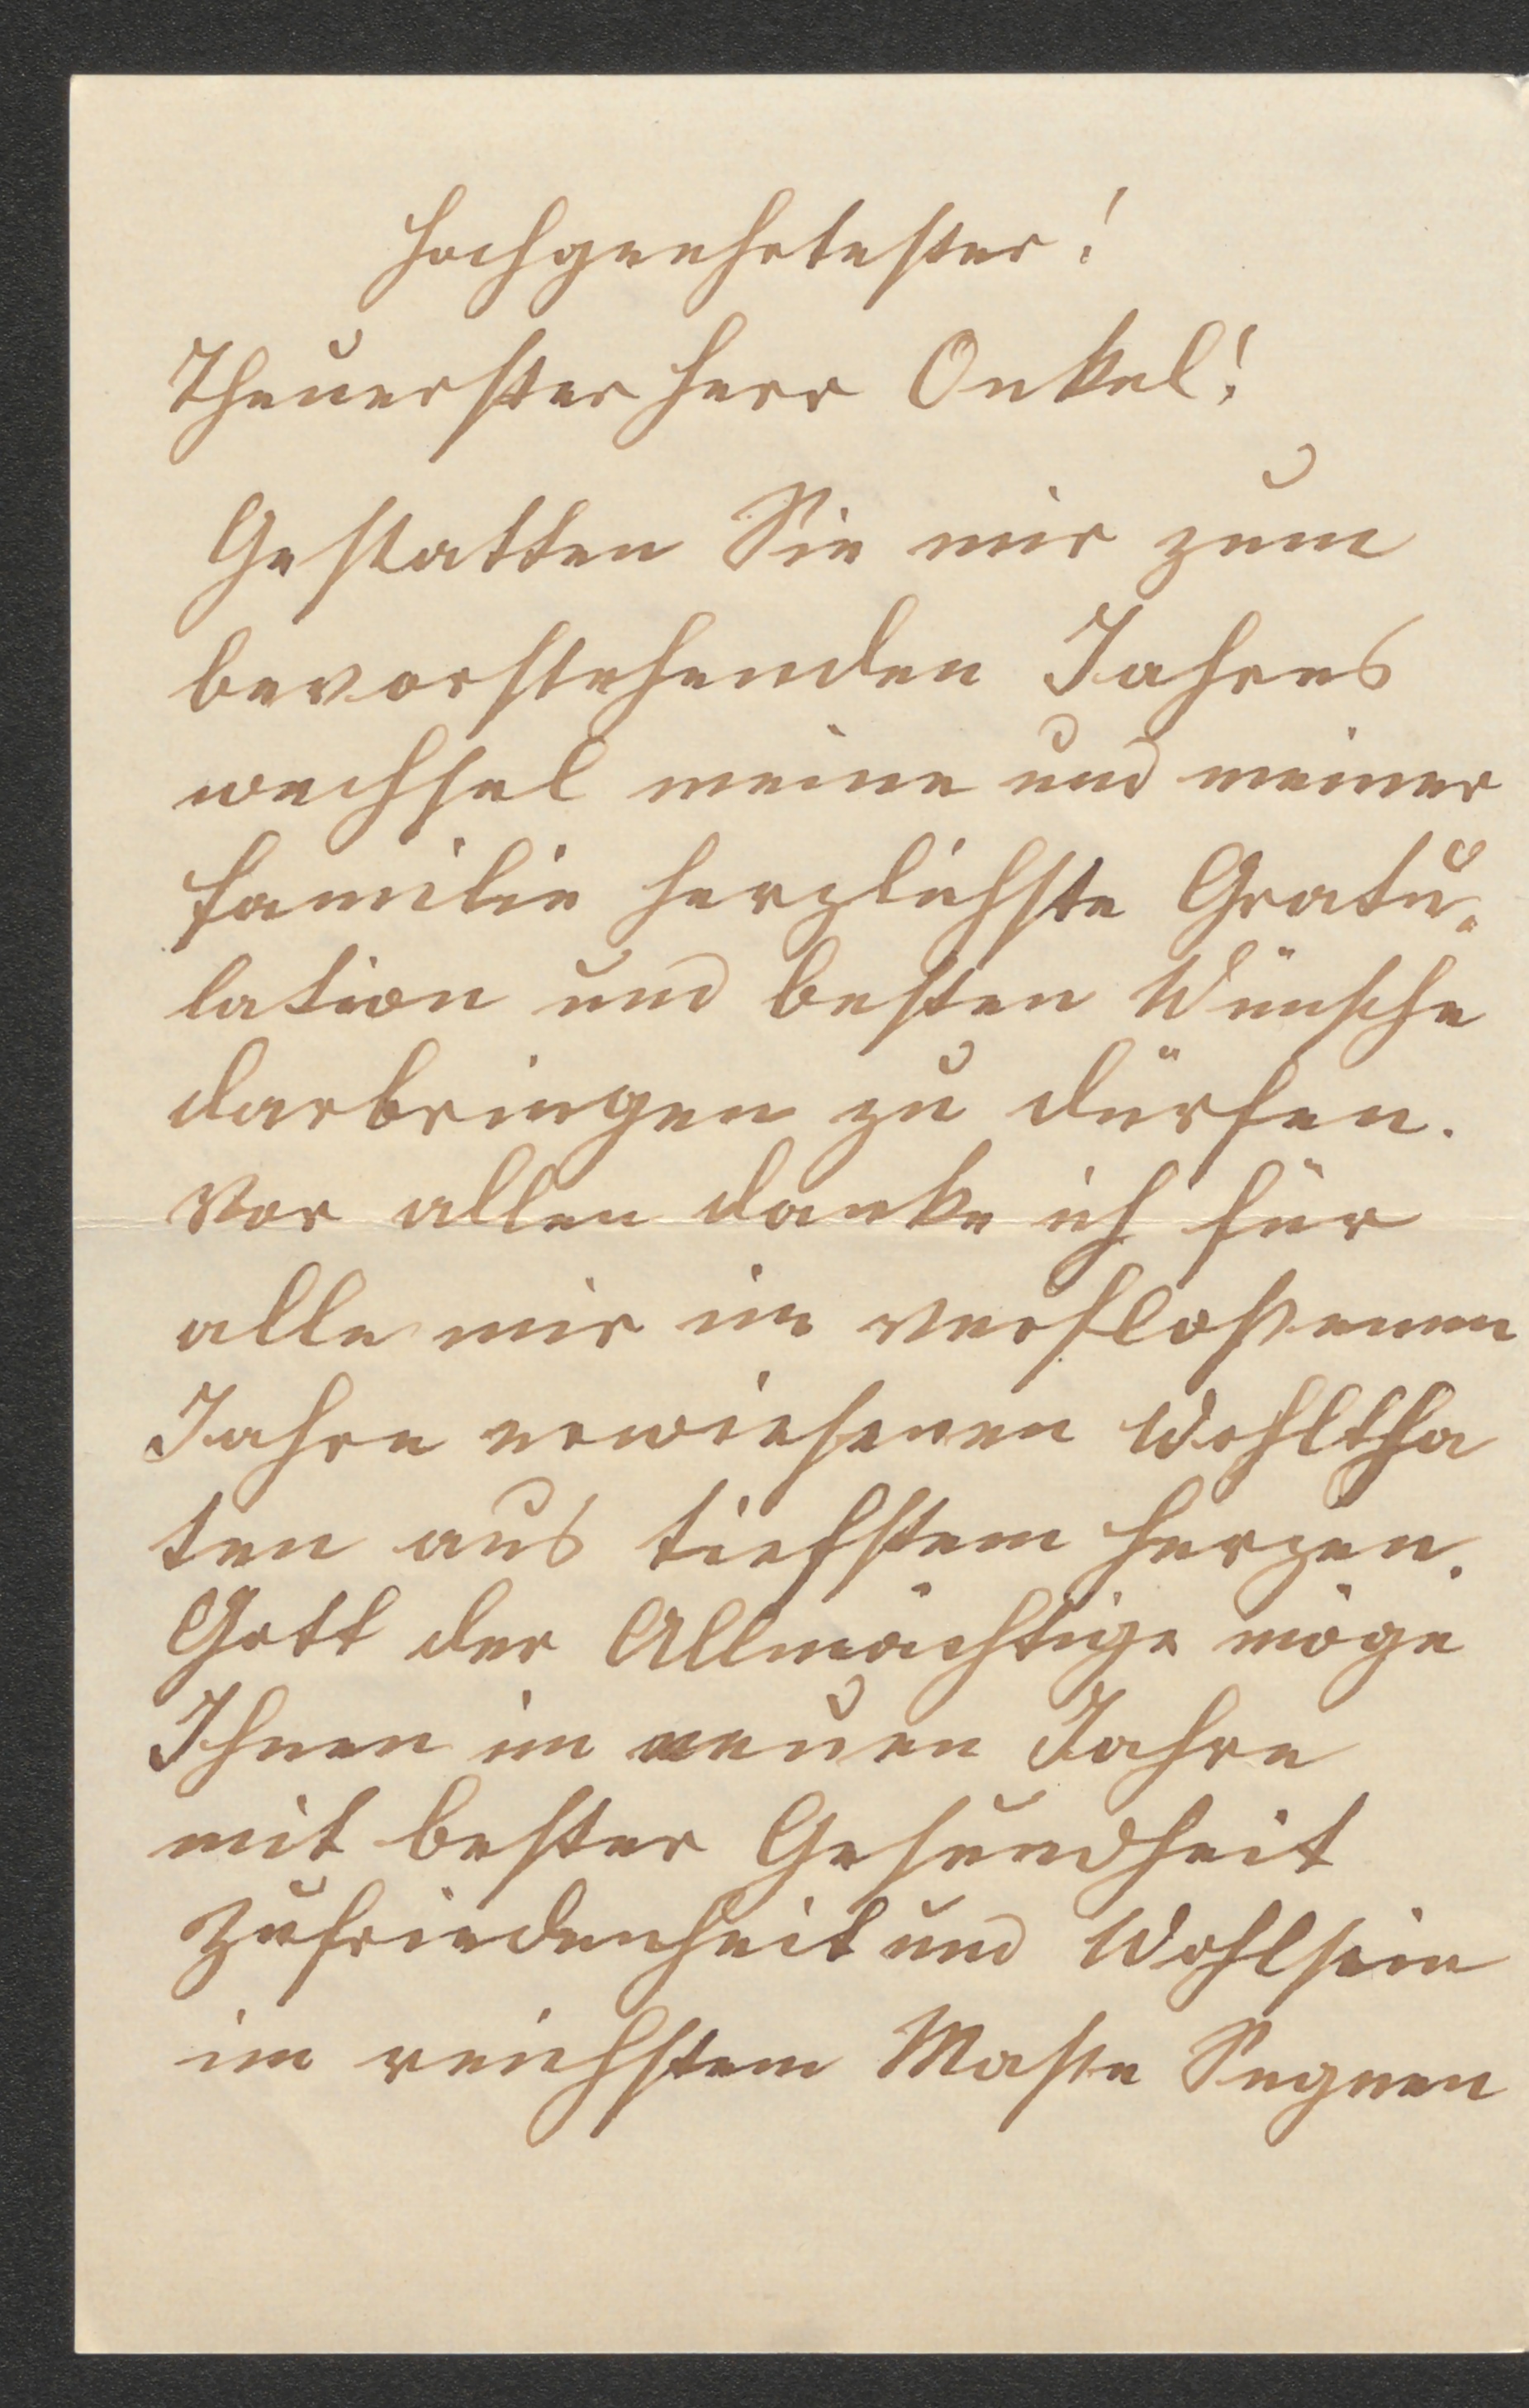 Hochgeehrtester!
Theuerster Herr Onkel!
Gestatten Sie mir zum
bevorstehenden Jahres
wechsel meine und meiner
Familie herzlichste Gratu-
lation und besten Wünsche
darbringen zu dürfen.
Vor allen danke ich für
alle mir im verfloßenen
Jahre erwiesenen Wohltha
ten aus tiefstem Herzen.
Gott der Allmächtige möge
Ihnen im neuen Jahre
mit bester Gesundheit
Zufriedenheit und Wohlsein
im reichstem Maße Segnen